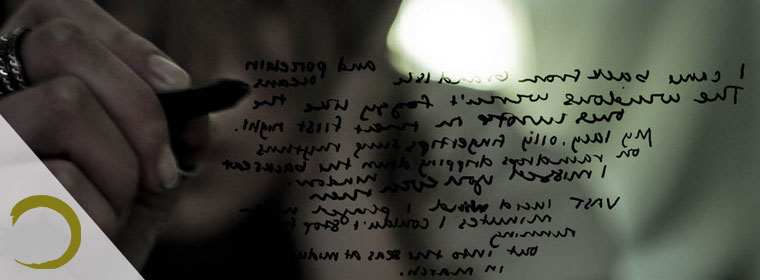 I came back from and porcelain
oceans
The windows weren't foggy like the
ones wrote on that first night.
My lazy, oily fingertips sung rhythms
on raindrops dripping down the backseat
window.
I missed you even then
VAST lucid I prayer
minutes I couldn't stop
running
out into the seas at
in march.